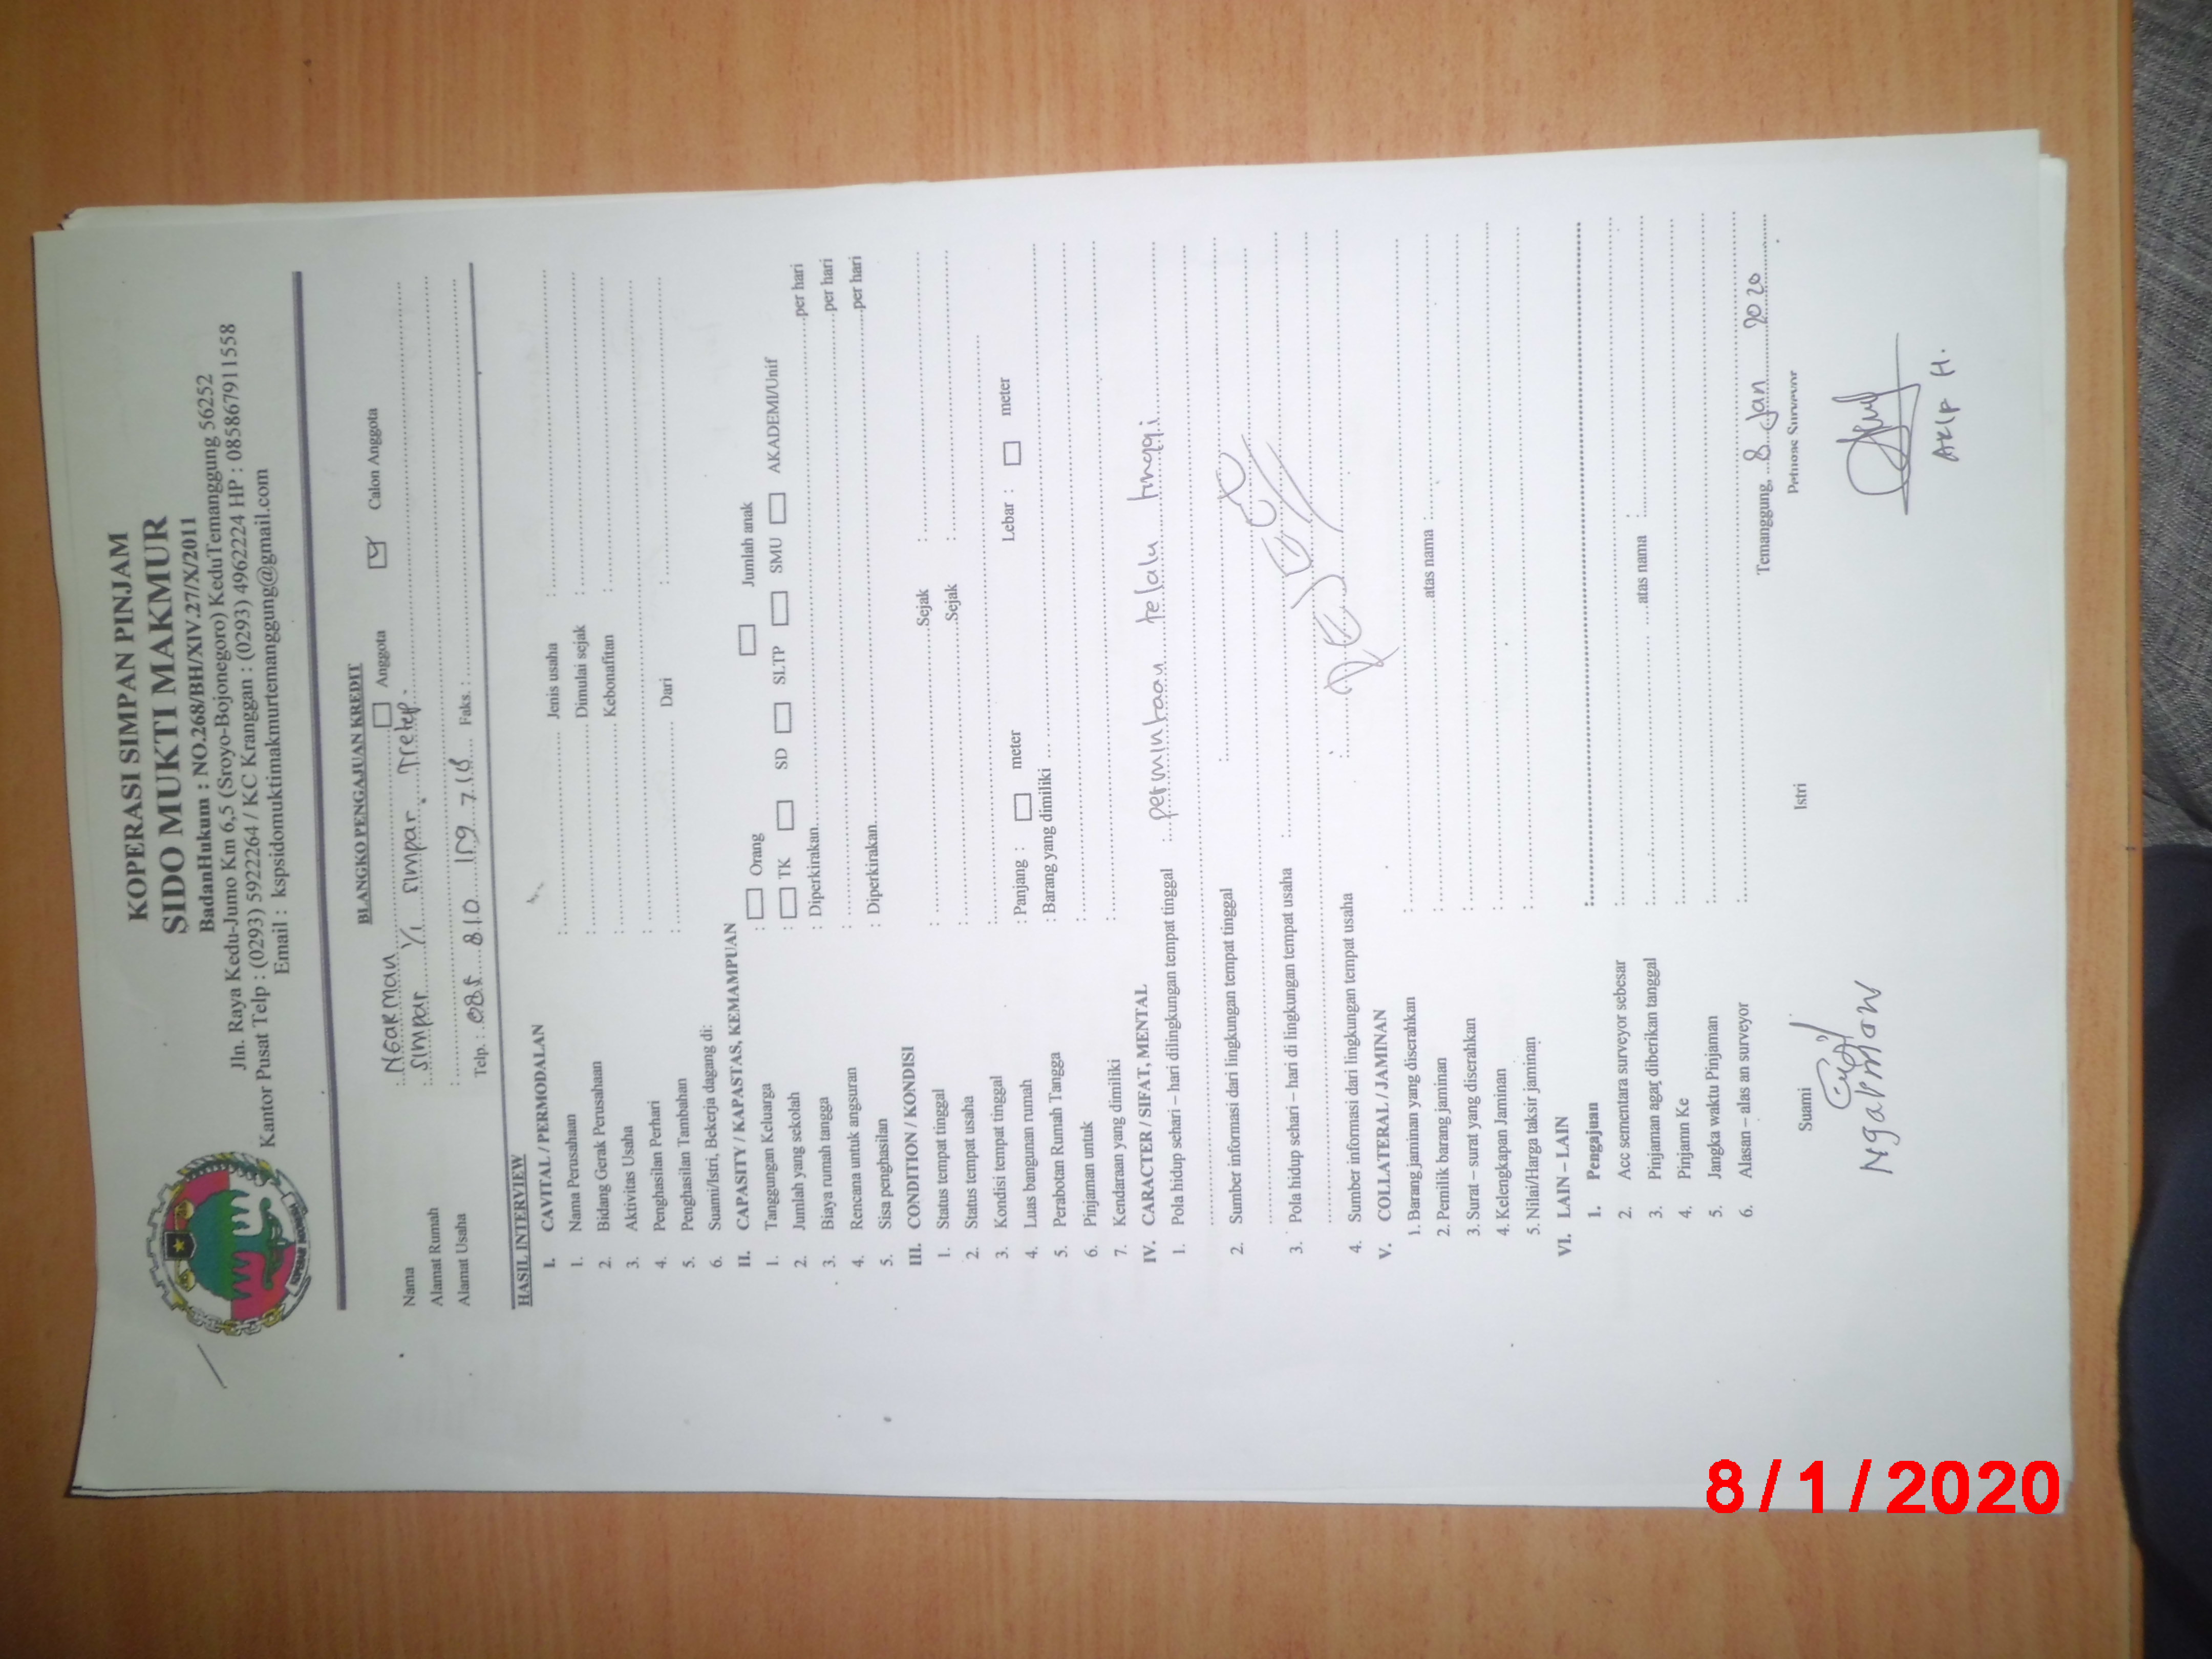 KOPERASI SIMPAN PINJAM
SIDO MUKTI MAKMUR
BadanHukum : NO.268/BH/XIV.27/X/2011
Jln. Raya Kedu-Jumo Km 6,5 (Sroyo-Bojonegoro) KeduTemanggung 56252
Kantor Pusat Telp : (0293) 5922264 / KC Kranggan : (0293) 4962224 HP : 085867911558
Email : kspsidomuktimakmurtemanggung@gmail.com
BLANGKO PENGAJUAN KREDIT
Anggota Calon Anggota
Nama : NGARMAN
Alamat Rumah : SIMPAR 1/1 SIMPAR . Tretep.
Alamat Usaha :
Telp. : 085 810 159 718 Faks. :
HASIL INTERVIEW
I. CAVITAL / PERMODALAN
1. Nama Perusahaan : Jenis usaha :
2. Bidang Gerak Perusahaan : Dimulai sejak :
3. Aktivitas Usaha : Kebonafitan :
4. Penghasilan Perhari :
5. Penghasilan Tambahan : Dari :
6. Suami/Istri, Bekerja dagang di:
II. CAPASITY / KAPASTAS, KEMAMPUAN
1. Tanggungan Keluarga : Orang Jumlah anak
2. Jumlah yang sekolah : TK SD SLTP SMU AKADEMI/Unif
3. Biaya rumah tangga : Diperkirakan per hari
4. Rencana untuk angsuran : per hari
5. Sisa penghasilan : Diperkirakan per hari
III. CONDITION / KONDISI
1. Status tempat tinggal : Sejak :
2. Status tempat usaha : Sejak :
3. Kondisi tempat tinggal :
4. Luas bangunan rumah : Panjang : meter Lebar : meter
5. Perabotan Rumah Tangga : Barang yang dimiliki
6. Pinjaman untuk :
7. Kendaraan yang dimiliki :
IV. CARACTER / SIFAT, MENTAL
1. Pola hidup sehari – hari dilingkungan tempat tinggal : permintaan telalu tinggi
2. Sumber informasi dari lingkungan tempat tinggal :
3. Pola hidup sehari – hari di lingkungan tempat usaha :
4. Sumber informasi dari lingkungan tempat usaha :
V. COLLATERAL / JAMINAN
1. Barang jaminan yang diserahkan :
2. Pemilik barang jaminan : atas nama :
3. Surat – surat yang diserahkan :
4. Kelengkapan Jaminan :
5. Nilai/Harga taksir jaminan :
VI. LAIN – LAIN
1. Pengajuan :
2. Acc sementara surveyor sebesar :
3. Pinjaman agar diberikan tanggal : atas nama :
4. Pinjamn Ke :
5. Jangka waktu Pinjaman :
6. Alasan – alas an surveyor :
Temanggung, 8 Jan 2020
Suami Istri Petugas Surveyor
Ngarman
ARIP H.
8/1/2020